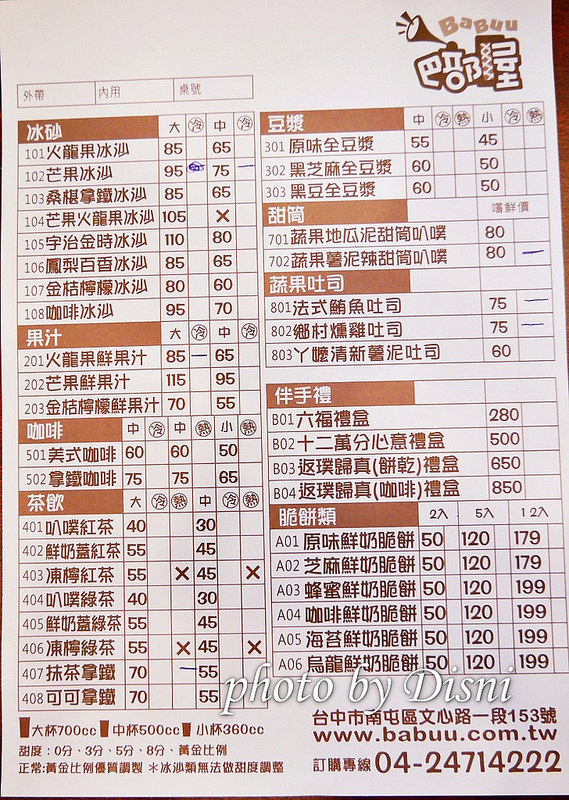 BaBuu
巴部屋
外帶 內用 桌號
冰砂 大 冷 中 冷
101火龍果冰沙 85 65
102芒果冰沙 95 75
103桑椹拿鐵冰沙 85 65
104芒果火龍果冰沙 105 ×
105宇治金時冰沙 110 80
106鳳梨百香冰沙 85 65
107金桔檸檬冰沙 80 60
108咖啡冰沙 95 70
果汁 大 冷 中 冷
201火龍果鮮果汁 85 65
202芒果鮮果汁 115 95
203金桔檸檬鮮果汁 70 55
咖啡 中 冷 中 熱 小 熱
501美式咖啡 60 60 50
502拿鐵咖啡 75 75 65
茶飲 大 冷 熱 中 冷 熱
401叭噗紅茶 40 30
402鮮奶蓋紅茶 55 45
403凍檸紅茶 55 × 45 ×
404叭噗綠茶 40 30
405鮮奶蓋綠茶 55 45
406凍檸綠茶 55 × 45 ×
407抹茶拿鐵 70 55
408可可拿鐵 70 55
大杯700cc 中杯500cc 小杯360cc
甜度：0分、3分、5分、8分、黃金比例
正常:黃金比例優質調製 ＊冰沙類無法做甜度調整
豆漿 中 冷 熱 小 冷 熱
301 原味全豆漿 55 45
302 黑芝麻全豆漿 60 50
303 黑豆全豆漿 60 50
甜筒 嚐鮮價
701蔬果地瓜泥甜筒叭噗 80
702蔬果薯泥辣甜筒叭噗 80
蔬果吐司
801法式鮪魚吐司 75
802鄉村燻雞吐司 75
803丫嬤清新薯泥吐司 60
伴手禮
B01六福禮盒 280
B02十二萬分心意禮盒 500
B03返璞歸真(餅乾)禮盒 650
B04返璞歸真(咖啡)禮盒 850
脆餅類 2入 5入 12入
A01原味鮮奶脆餅 50 120 179
A02芝麻鮮奶脆餅 50 120 179
A03蜂蜜鮮奶脆餅 50 120 199
A04咖啡鮮奶脆餅 50 120 199
A05海苔鮮奶脆餅 50 120 199
A06烏龍鮮奶脆餅 50 120 199
photo by Disni
台中市南屯區文心路一段153號
www.babuu.com.tw
訂購專線 04-24714222